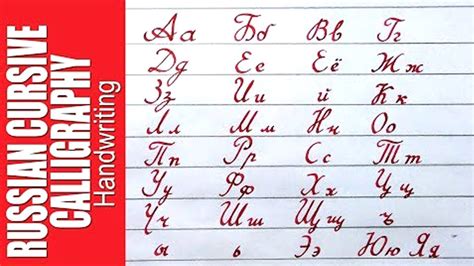 RUSSIAN CURSIVE
CALLIGRAPHY
Handwriting
Аа Бб Вв Гг
Дд Ее Её Жж
Зз Ии й Кк
Лл Мм Нн Оо
Пп Рр Сс Тт
Уу Фф Хх Цц
Чч Шш Щщ ъ
ы ь Ээ Юю Яя